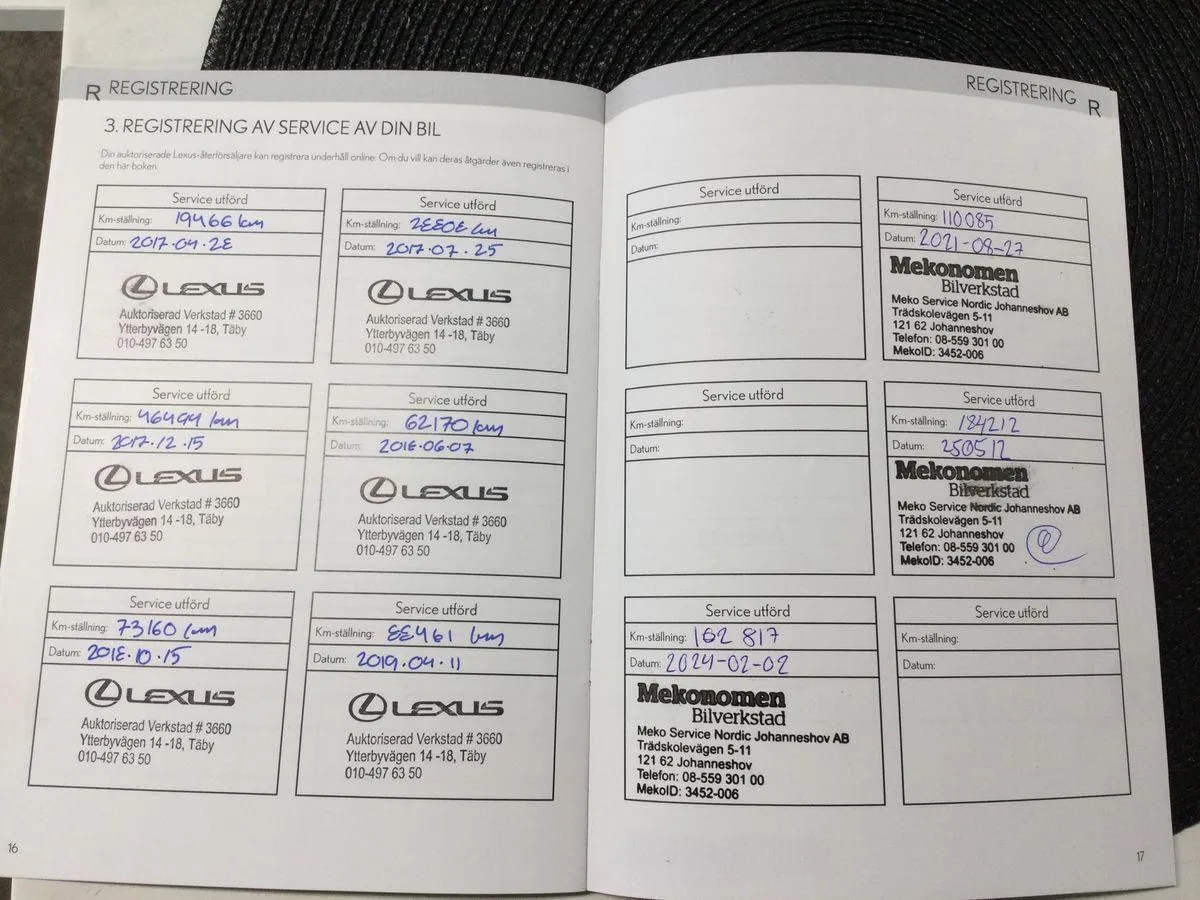 R REGISTRERING
3. REGISTRERING AV SERVICE AV DIN BIL
Din auktoriserade Lexus-återförsäljare kan registrera underhåll online. Om du vill kan deras åtgärder även registreras i
den här boken.
Service utförd
Km-ställning: 19466 km
Datum: 2017.04.28
LEXUS
Auktoriserad Verkstad # 3660
Ytterbyvägen 14 -18, Täby
010-497 63 50
Service utförd
Km-ställning: 28808 km
Datum: 2017.07.25
LEXUS
Auktoriserad Verkstad # 3660
Ytterbyvägen 14 -18, Täby
010-497 63 50
Service utförd
Km-ställning: 46494 km
Datum: 2017.12.15
LEXUS
Auktoriserad Verkstad # 3660
Ytterbyvägen 14 -18, Täby
010-497 63 50
Service utförd
Km-ställning: 62170 km
Datum: 2018.06.07
LEXUS
Auktoriserad Verkstad # 3660
Ytterbyvägen 14 -18, Täby
010-497 63 50
Service utförd
Km-ställning: 73160 km
Datum: 2018.10.15
LEXUS
Auktoriserad Verkstad # 3660
Ytterbyvägen 14 -18, Täby
010-497 63 50
Service utförd
Km-ställning: 88461 km
Datum: 2019.04.11
LEXUS
Auktoriserad Verkstad # 3660
Ytterbyvägen 14 -18, Täby
010-497 63 50
16
REGISTRERING R
Service utförd
Km-ställning:
Datum:
Service utförd
Km-ställning: 110085
Datum: 2021-08-27
Mekonomen
Bilverkstad
Meko Service Nordic Johanneshov AB
Trädskolevägen 5-11
121 62 Johanneshov
Telefon: 08-559 301 00
MekoID: 3452-006
Service utförd
Km-ställning:
Datum:
Service utförd
Km-ställning: 184212
Datum: 250512
Mekonomen
Bilverkstad
Meko Service Nordic Johanneshov AB
Trädskolevägen 5-11
121 62 Johanneshov
Telefon: 08-559 301 00
MekoID: 3452-006
Service utförd
Km-ställning: 162 817
Datum: 2024-02-02
Mekonomen
Bilverkstad
Meko Service Nordic Johanneshov AB
Trädskolevägen 5-11
121 62 Johanneshov
Telefon: 08-559 301 00
MekoID: 3452-006
Service utförd
Km-ställning:
Datum:
17